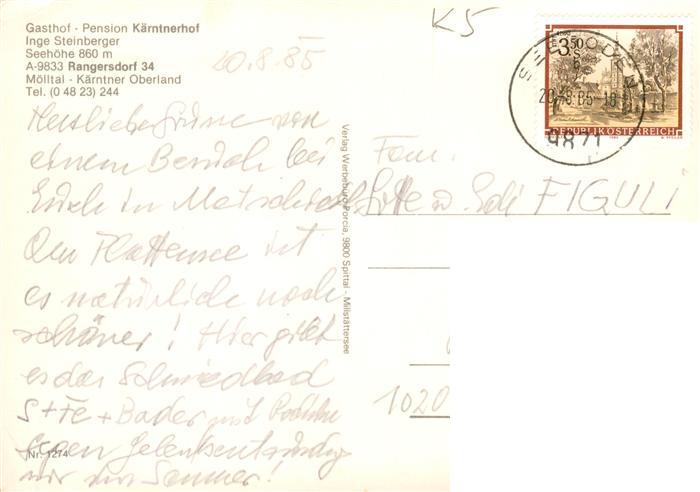 Gasthof - Pension Kärntnerhof
Inge Steinberger
Seehöhe 860 m
A-9833 Rangersdorf 34
Mölltal - Kärntner Oberland
Tel. (0 48 23) 244
K5
20.8.85
Herzliche Grüsse von
einem Besuch bei
Euch in
Am Plattensee ist
es natürlich noch
schöner! Hier gibt
es das
+ Bäder und
gegen Gelenksentzündung
nur im Sommer!
Nr. 1274
Verlag Werbebüro Porcia, 9800 Spittal - Millstättersee
3.50
S
REPUBLIK ÖSTERREICH
SEEBODEN
20.-8.85-18
9871
Fam.
Lotte u. Edi FIGULI
1020